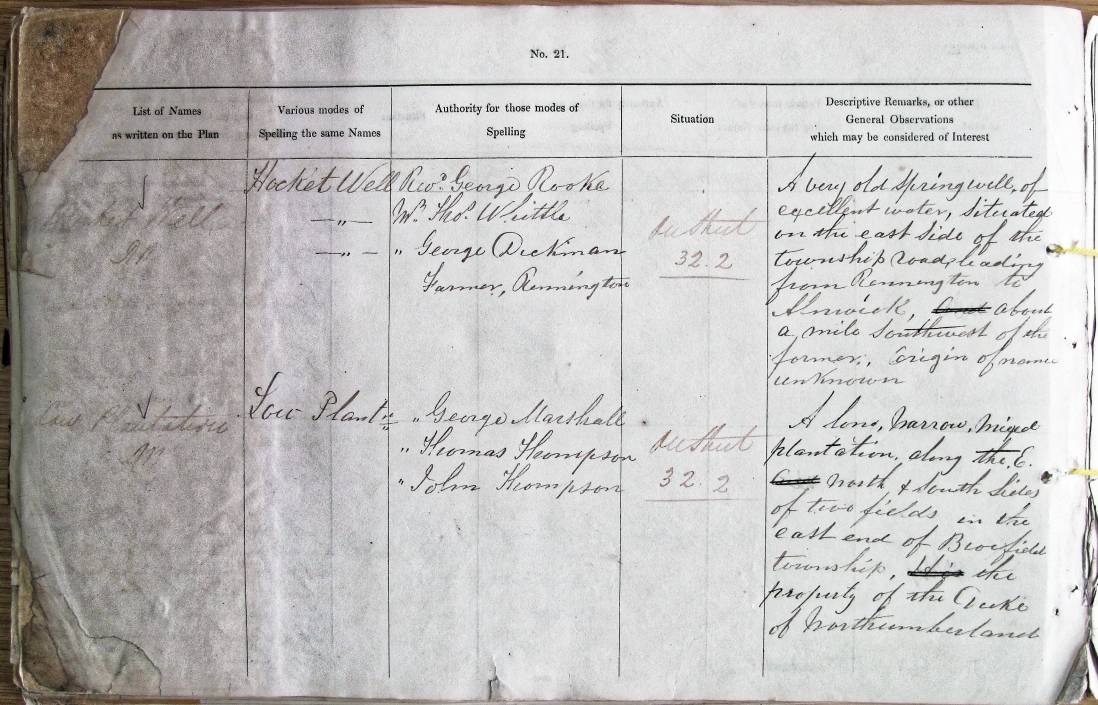 No. 21.
List of Names
as written on the Plan
Various modes of
Spelling the same Names
Authority for those modes of
Spelling
Situation
Descriptive Remarks, or other
General Observations
which may be considered of Interest
Hocket Well
Hocket Well Revd. George Rooke
—„— Mr. Thos. Whittle
—„— „ George Dickman
Farmer, Rennington
On Sheet
32.2
A very old spring well, of
excellent water, situated
on the east side of the
township road, leading
from Rennington to
Alnwick, about
a mile Southwest of the
former, Origin of name
unknown
Low Plantation
Low Plantn „ George Marshall
„ Thomas Thompson
„ John Thompson
On Sheet
32.2
A long, narrow, mixed
plantation, along the E.
and North & South Sides
of two fields in the
east end of Broxfield
township, the
property of the Duke
of Northumberland